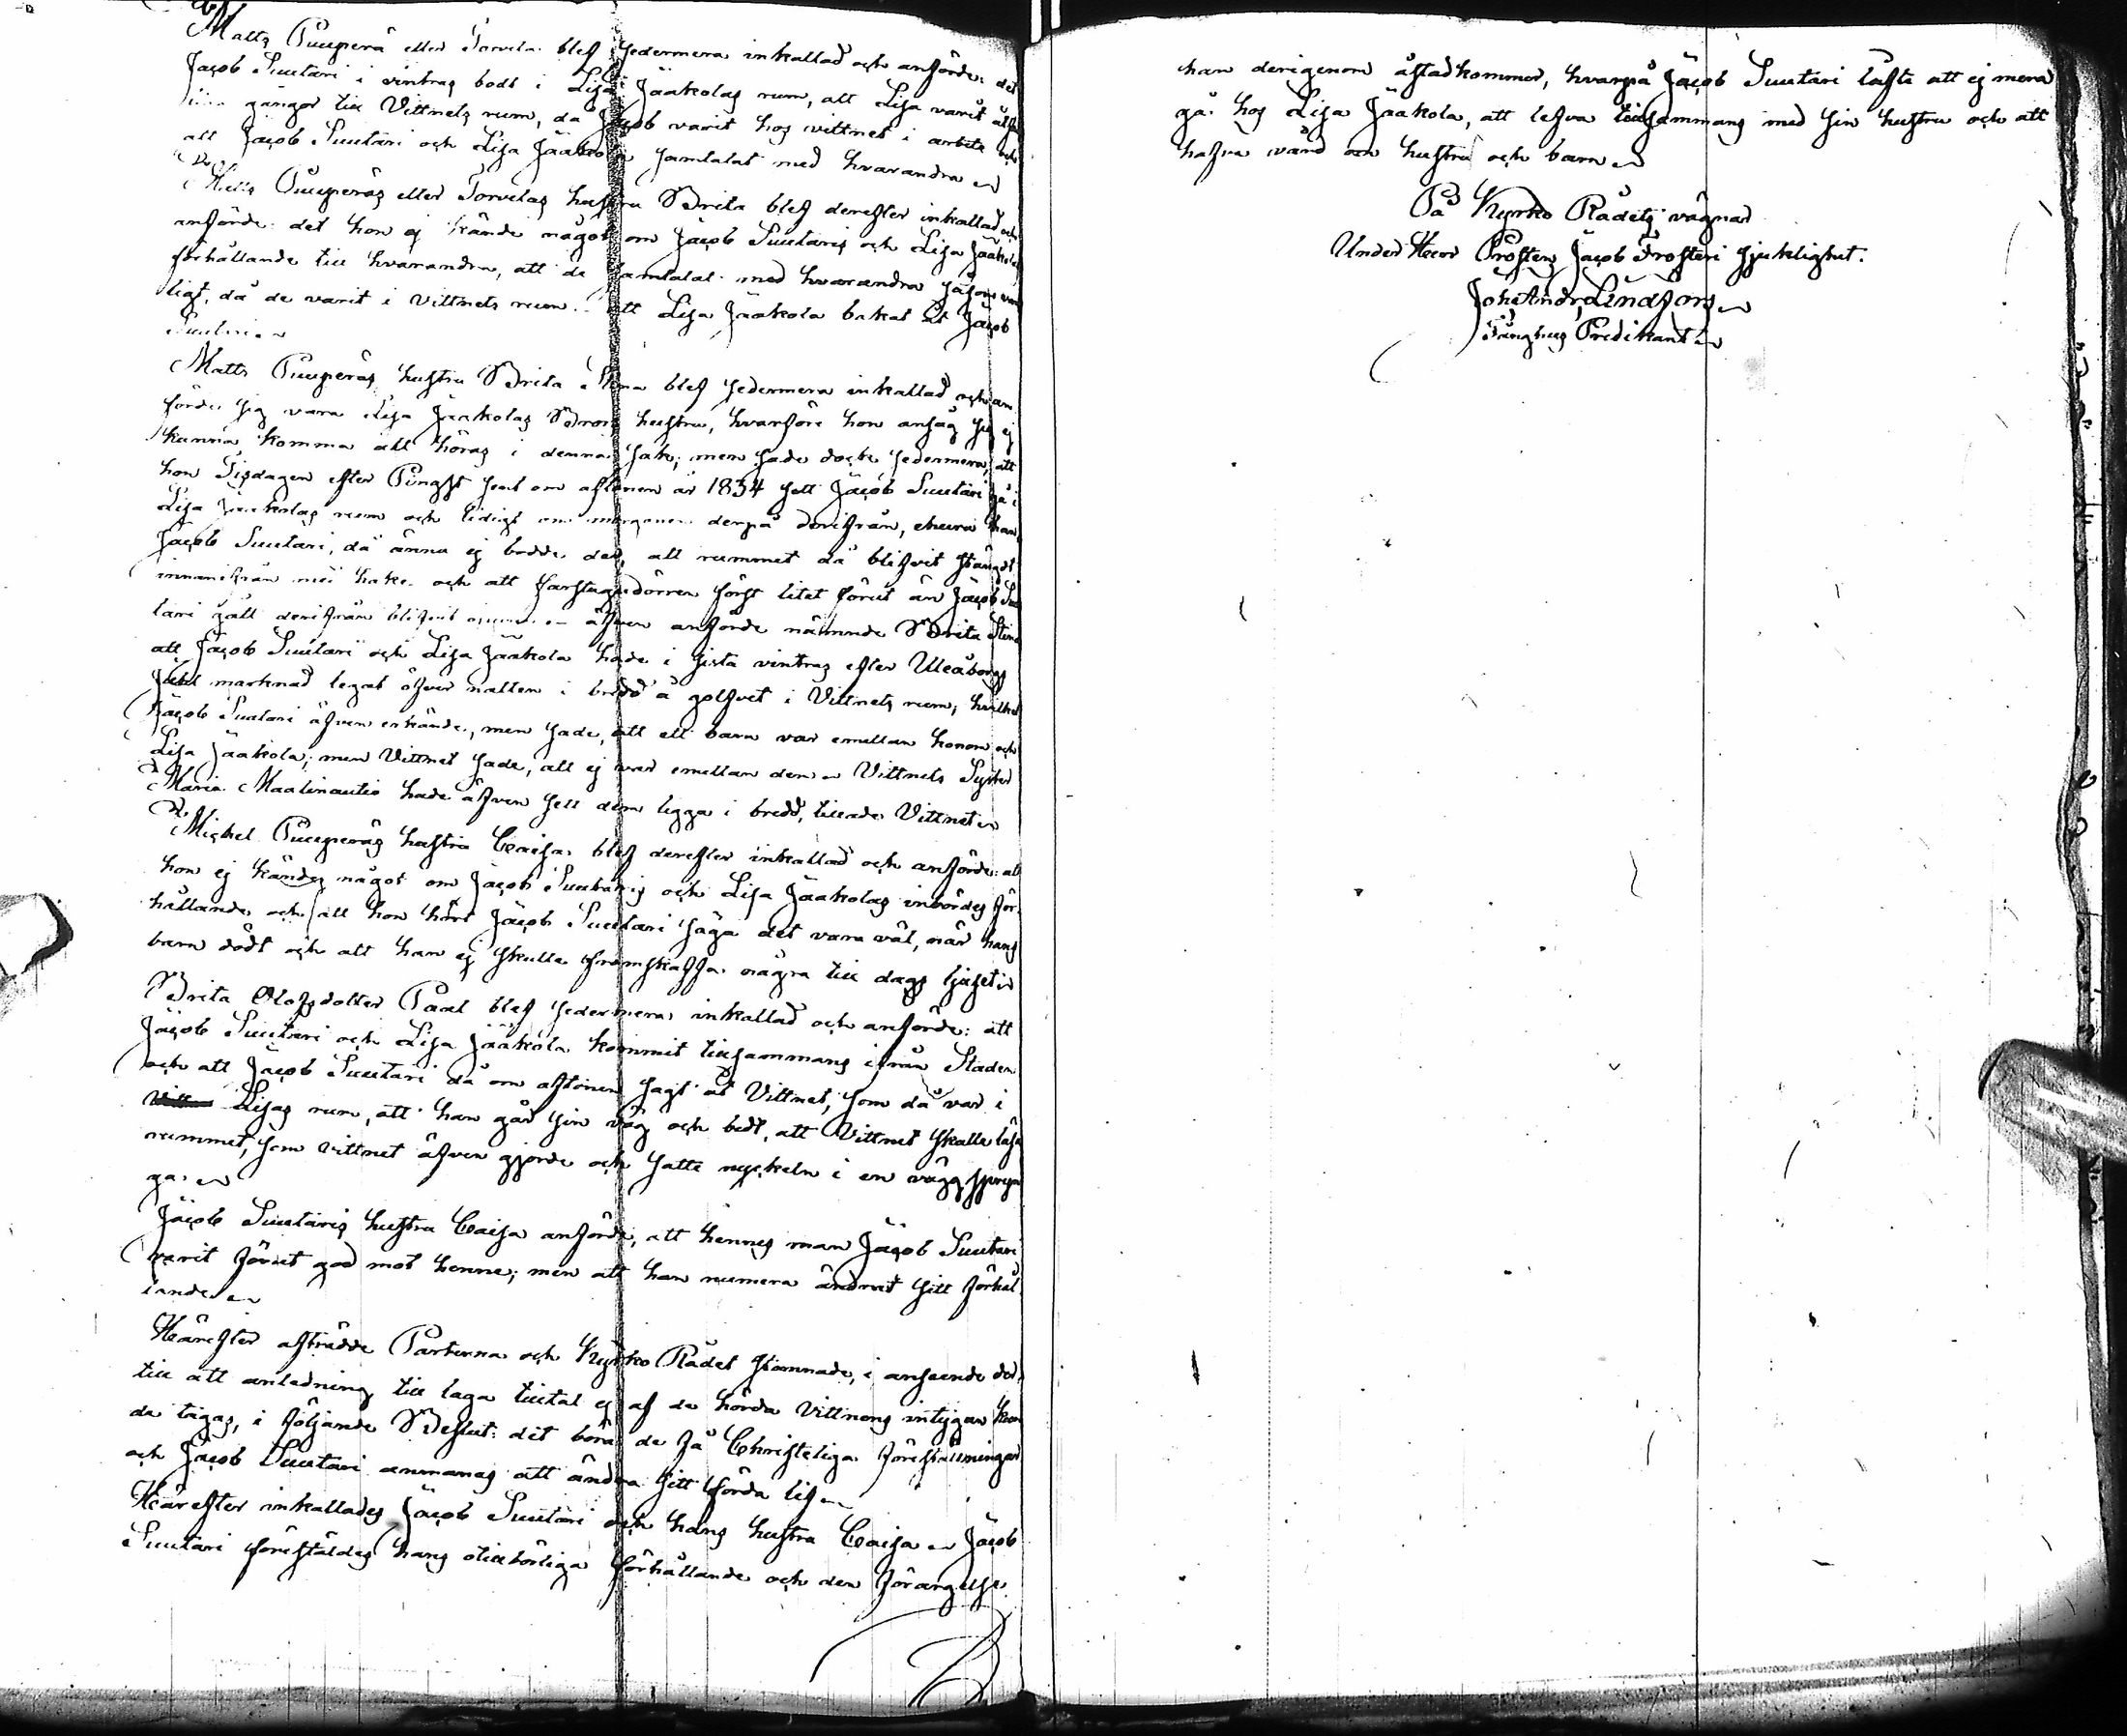 Matts Puuperä eller Torvela blef sedermera inkallad och anförde: det
Jacob Suutari i vintras bodt i Lisa Jääkolas rum, att Lisa varit
gångor till Vittnets rum, då Jacob varit hos vittnet i arbete och
att Jacob Suutari och Lisa Jääkola samtalat med hvarandra
Matts Puuperäs eller Torvelas hustru Brita blef derefter inkallad och
anförde: det hon ej kände något om Jacob Suutaris och Lisa Jääkolas
förhållande till hvarandra, att de samtalat med hvarandra såsom van
ligt, då de varit i Vittnets rum. att Lisa Jääkola bakat åt Jacob
Suutari
Matts Puuperäs hustru Brita Stina blef sedermera inkallad och an
förde sig vara Lisa Jääkolas Brors hustru, hvarföre hon ansåg sig ej
kunna komma att höras i denna sak; men sade dock sedermera, att
hon Tisdagen efter Pingst sent om aftonen år 1834 sett Jacob Suutari gå i
Lisa Jääkolas rum och tidigt om morgonen derpå derifrån, ehuru han,
Jacob Suutari, då ännu ej bodde der, att rummet då blifvit stängdt
innanifrån med hake och att farstugudörren först litet förut än Jacob Suu
tari gått derifrån blifvit äfven anförde nämnde Brita Stina
att Jacob Suutari och Lisa Jääkola hade i sista vintras efter Uleåborgs
marknad legat öfver natten i bredd å golfvet i Vittnets rum, hvilket
Jacob Suutari äfven erkände, men sade, att ett barn var emellan honom och
Lisa Jääkola; men Vittnet sade, att ej var emellan dem Vittnets Syster
Maria Maalinautio hade äfven sett dem ligga i bredd, tillade Vittnet
Michel Puuperäs hustru Caisa blef derefter inkallad och anförde: att
hon ej kändes något om Jacob Suutaris och Lisa Jääkolas inbördes för
hållande och att hon hört Jacob Suutari säga det vara väl, när hans
barn dödt och att han ej skulle framskaffa några till dags ljuset
Brita Olofsdotter Paal blef sedermera inkallad och anförde: att
Jacob Suutari och Lisa Jääkola kommit tillsammans ifrån Staden
och att Jacob Suutari då om aftonen sagt åt Vittnet, som då var i
Lisas rum, att han går sin väg och bedt, att Vittnet skulle låsa
rummet, som vittnet äfven gjorde och satte nyckeln i en vägg sprin
ga.
Jacob Suutaris hustru Caisa anförde, att hennes man Jacob Suutari
varit förut god mot henne; men att han numera ändrat sitt förhål
lande
Härefter afträdde Parterna och Kyrko Rådet stannade, i anseende der
till att anledning till laga tilltal ej af de hörda Vittnens intygan kun
de tagas, i följande Beslut: det böra de få Christeliga föreställningar
och Jacob Suutari anmanas att ändra sitt förda lif
Härefter inkallades Jacob Suutari och hans hustru Caisa Jacob
Suutari föreställdes hans otillbörliga förhållande och den förargelse
han derigenom åstadkommer, hvarpå Jacob Suutari låfte att ej mera
gå hos Lisa Jääkola, att lefva tillsammans med sin hustru och att
hafva vård om hustru och barn
På Kyrko Rådets vägnar
Under Herr Prosten Jacob Frosteri sjuklighet.
Joh: Andr: Lindfors
Fånghus Predikant